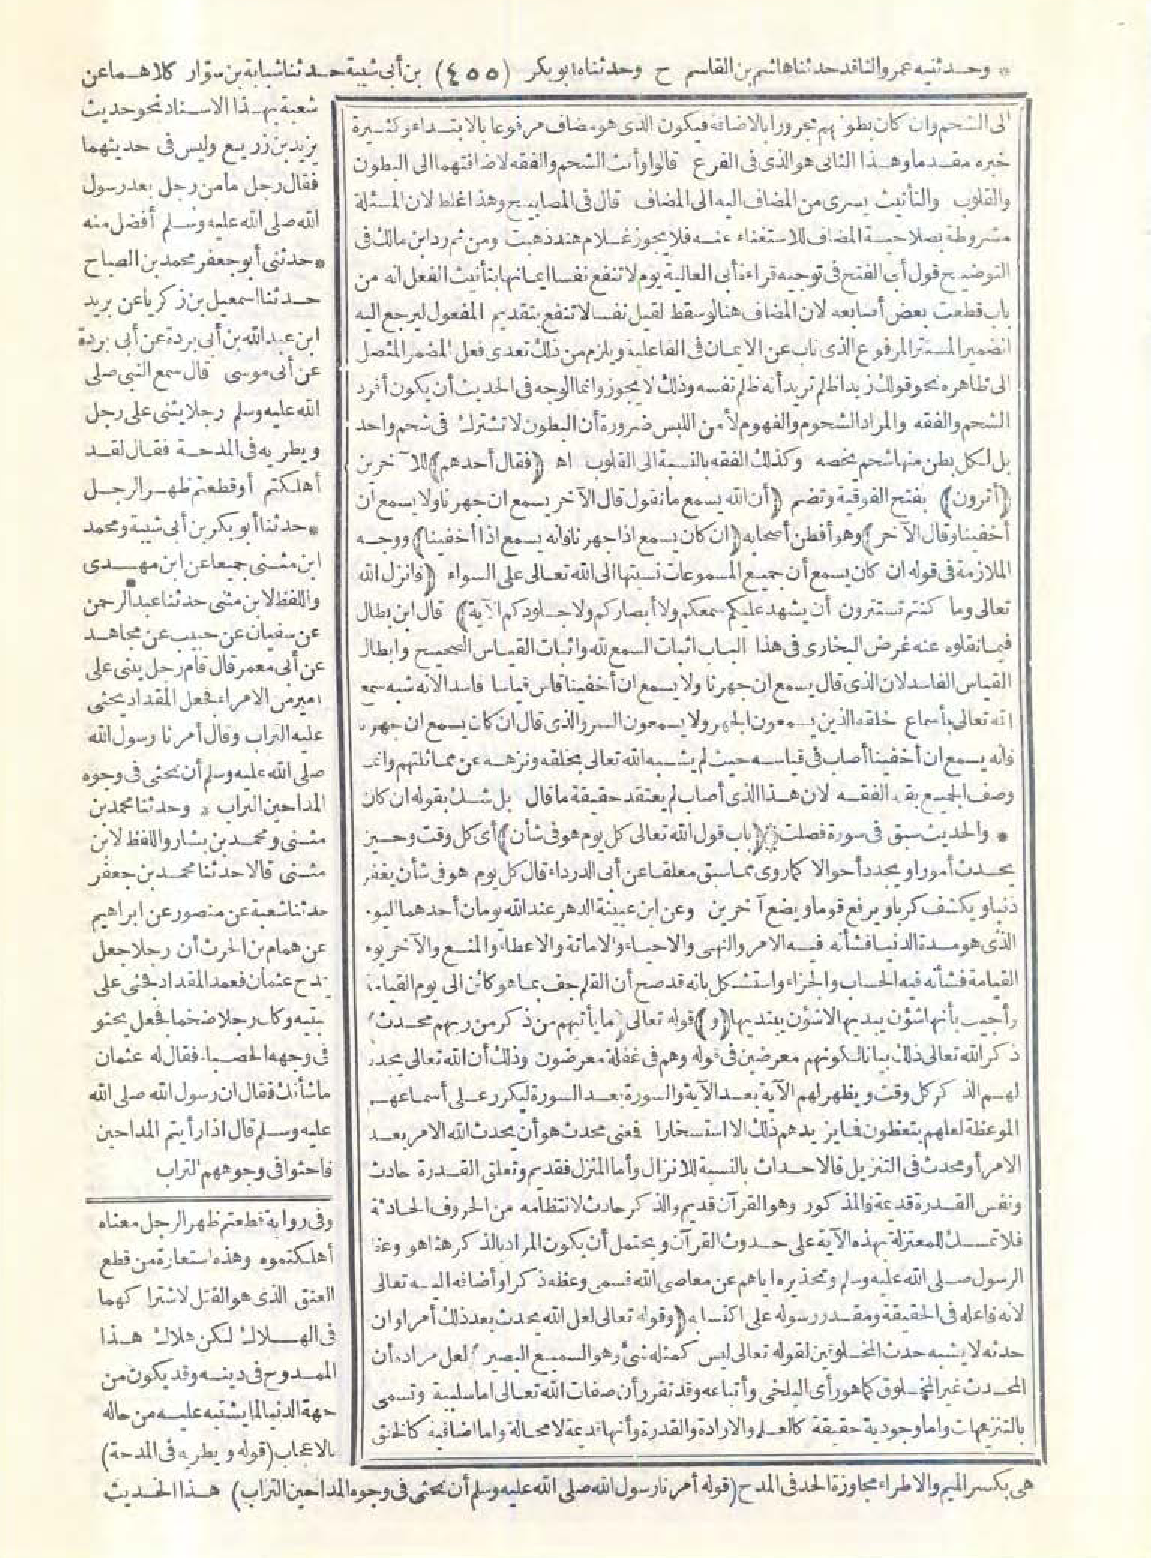 * وحدثنيه عمرو الناقد حدثنا هاشم بن القاسم ح وحدثناه أبو بكر (٤٥٥) بن أبي شيبة حدثنا شبابة بن سوّار كلاهما عن
شعبة بهذا الاسناد نحو حديث
يزيد بن زريع وليس فى حديثهما
فقال رجل ما من رجل بعد رسول
الله صلى الله عليه وسلم أفضل منه
* حدثنى أبو جعفر محمد بن الصباح
حدثنا اسمعيل بن زكريا عن بريد
ابن عبد الله بن أبى بردة عن أبى بردة
عن أبى موسى قال سمع النبى صلى
الله عليه وسلم رجلا يثنى على رجل
ويطريه فى المدحة فقال لقد
أهلكتم أو قطعتم ظهر الرجل
* حدثنا أبو بكر بن أبى شيبة ومحمد
ابن مثنى جميعا عن ابن مهدى
واللفظ لابن مثنى حدثنا عبد الرحمن
عن سفيان عن حبيب عن مجاهد
عن أبى معمر قال قام رجل يثنى على
أمير من الامراء فجعل المقداد يحثى
عليه التراب وقال أمرنا رسول الله
صلى الله عليه وسلم أن نحثى فى وجوه
المداحين التراب * وحدثنا محمد بن
مثنى ومحمد بن بشار واللفظ لابن
مثنى قالا حدثنا محمد بن جعفر
حدثنا شعبة عن منصور عن ابراهيم
عن همام بن الحرث أن رجلا جعل
يمدح عثمان فعمد المقداد فجثى على
ركبتيه وكان رجلا ضخما فجعل يحثو
فى وجهه الحصباء فقال له عثمان
ما شأنك فقال ان رسول الله صلى الله
عليه وسلم قال اذا رأيتم المداحين
فاحثوا فى وجوههم التراب
وفى رواية قطعتم ظهر الرجل معناه
أهلكتموه وهذه استعارة من قطع
العنق الذى هو القتل لاشتراكهما
فى الهلاك لكن هلاك هذا
الممدوح فى دينه وقد يكون من
جهة الدنيا لما يشتبه عليه من حاله
بالاعجاب (قوله ويطريه فى المدحة)
الى الشحم وان كان بطونهم مجرورا بالاضافة فيكون الذى هو مضاف مرفوعا بالابتداء وكثيرة
خبره مقدما وهذا الثانى هو الذى فى الفرع قالوا وأنث الشحم والفقه لاضافتهما الى البطون
والقلوب والتأنيث يسرى من المضاف اليه الى المضاف قال فى المصابيح وهذا غلط لان المسئلة
مشروطة بصلاحية المضاف للاستغناء عنه فلا يجوز غلام هند ذهبت ومن ثم رد ابن مالك فى
التوضيح قول أبى الفتح فى توجيه قراءة أبى العالية يوم لا تنفع نفسا ايمانها بتأنيث الفعل انه من
باب قطعت بعض أصابعه لان المضاف هنا لو سقط لقيل نفسا لا تنفع بتقديم المفعول ليرجع اليه
الضمير المستتر المرفوع الذى ناب عن الايمان فى الفاعلية ويلزم من ذلك تعدى فعل المضمر المتصل
الى ظاهره نحو قولك زيدا ظلم تريد أنه ظلم نفسه وذلك لا يجوز وانما الوجه فى الحديث أن يكون أفرد
الشحم والفقه والمراد الشحوم والفهوم لأمن اللبس ضرورة أن البطون لا تشترك فى شحم واحد
بل لكل بطن منها شحم يخصه وكذلك الفقه بالنسبة الى القلوب اه (فقال أحدهم) للآخرين
(أترون) بفتح الفوقية وتضم (أن الله يسمع ما نقول قال الآخر يسمع ان جهرنا ولا يسمع ان
أخفينا وقال الآخر) وهو أفطن أصحابه (ان كان يسمع اذا جهرنا فانه يسمع اذا أخفينا) ووجه
الملازمة فى قوله ان كان يسمع أن جميع المسموعات نسبتها الى الله تعالى على السواء (فانزل الله
تعالى وما كنتم تستترون أن يشهد عليكم سمعكم ولا أبصاركم ولا جلودكم الآية) قال ابن بطال
فيما نقلوه عنه غرض البخارى فى هذا الباب اثبات السمع لله واثبات القياس الصحيح وابطال
القياس الفاسد لان الذى قال يسمع ان جهرنا ولا يسمع ان أخفينا قاس قياسا فاسدا لانه شبه سمع
الله تعالى بأسماع خلقه الذين يسمعون الجهر ولا يسمعون السر والذى قال ان كان يسمع ان جهرنا
فانه يسمع ان أخفينا أصاب فى قياسه حيث لم يشبه الله تعالى بخلقه ونزهه عن مماثلتهم وانما
وصف الجميع بقلة الفقه لان هذا الذى أصاب لم يعتقد حقيقة ما قال بل شك بقوله ان كان
* والحديث سبق فى سورة فصلت (باب قول الله تعالى كل يوم هو فى شأن) أى كل وقت وحين
يحدث أمورا ويجدد أحوالا كما روى مما سبق معلقا عن أبى الدرداء قال كل يوم هو فى شأن يغفر
ذنبا ويكشف كربا ويرفع قوما ويضع آخرين وعن ابن عيينة الدهر عند الله يومان أحدهما اليوم
الذى هو مدة الدنيا فشأنه فيه الامر والنهى والاحياء والاماتة والاعطاء والمنع والآخر يوم
القيامة فشأنه فيه الحساب والجزاء واستشكل بانه قد صح أن القلم جف بما هو كائن الى يوم القيامة
وأجيب بأنها شؤن يبديها لا شؤن يبتديها (و) قوله تعالى (ما يأتيهم من ذكر من ربهم محدث)
ذكر الله تعالى ذلك بيانا لكونهم معرضين فى قوله وهم فى غفلة معرضون وذلك أن الله تعالى يجدد
لهم الذكر كل وقت ويظهر لهم الآية بعد الآية والسورة بعد السورة ليكرر على أسماعهم
الموعظة لعلهم يتعظون فما يزيدهم ذلك الا استسخارا فمعنى محدث هو أن يحدث الله الامر بعد
الامر أو محدث فى التنزيل فالاحداث بالنسبة للانزال وأما المنزل فقديم وتعلق القدرة حادث
ونفس القدرة قديمة والمذكور وهو القرآن قديم والذكر حادث لانتظامه من الحروف الحادثة
فلا تمسك للمعتزلة بهذه الآية على حدوث القرآن ويحتمل أن يكون المراد بالذكر هنا هو وعظ
الرسول صلى الله عليه وسلم وتحذيره اياهم عن معاصى الله فسمى وعظه ذكرا وأضافه اليه تعالى
لانه فاعله فى الحقيقة ومقدر رسوله على اكتسابه (وقوله تعالى لعل الله يحدث بعد ذلك أمرا وان
حدثه لا يشبه حدث المخلوقين لقوله تعالى ليس كمثله شىء وهو السميع البصير) لعل مراده أن
المحدث غير المخلوق كما هو رأى البلخى وأتباعه وقد تقرر أن صفات الله تعالى اما سلبية وتسمى
بالتنزيهات واما وجودية حقيقة كالعلم والارادة والقدرة وأنها قديمة لا محالة واما اضافية كالخلق
هى بكسر الميم والاطراء مجاوزة الحد فى المدح (قوله أمرنا رسول الله صلى الله عليه وسلم أن نحثى فى وجوه المداحين التراب) هذا الحديث